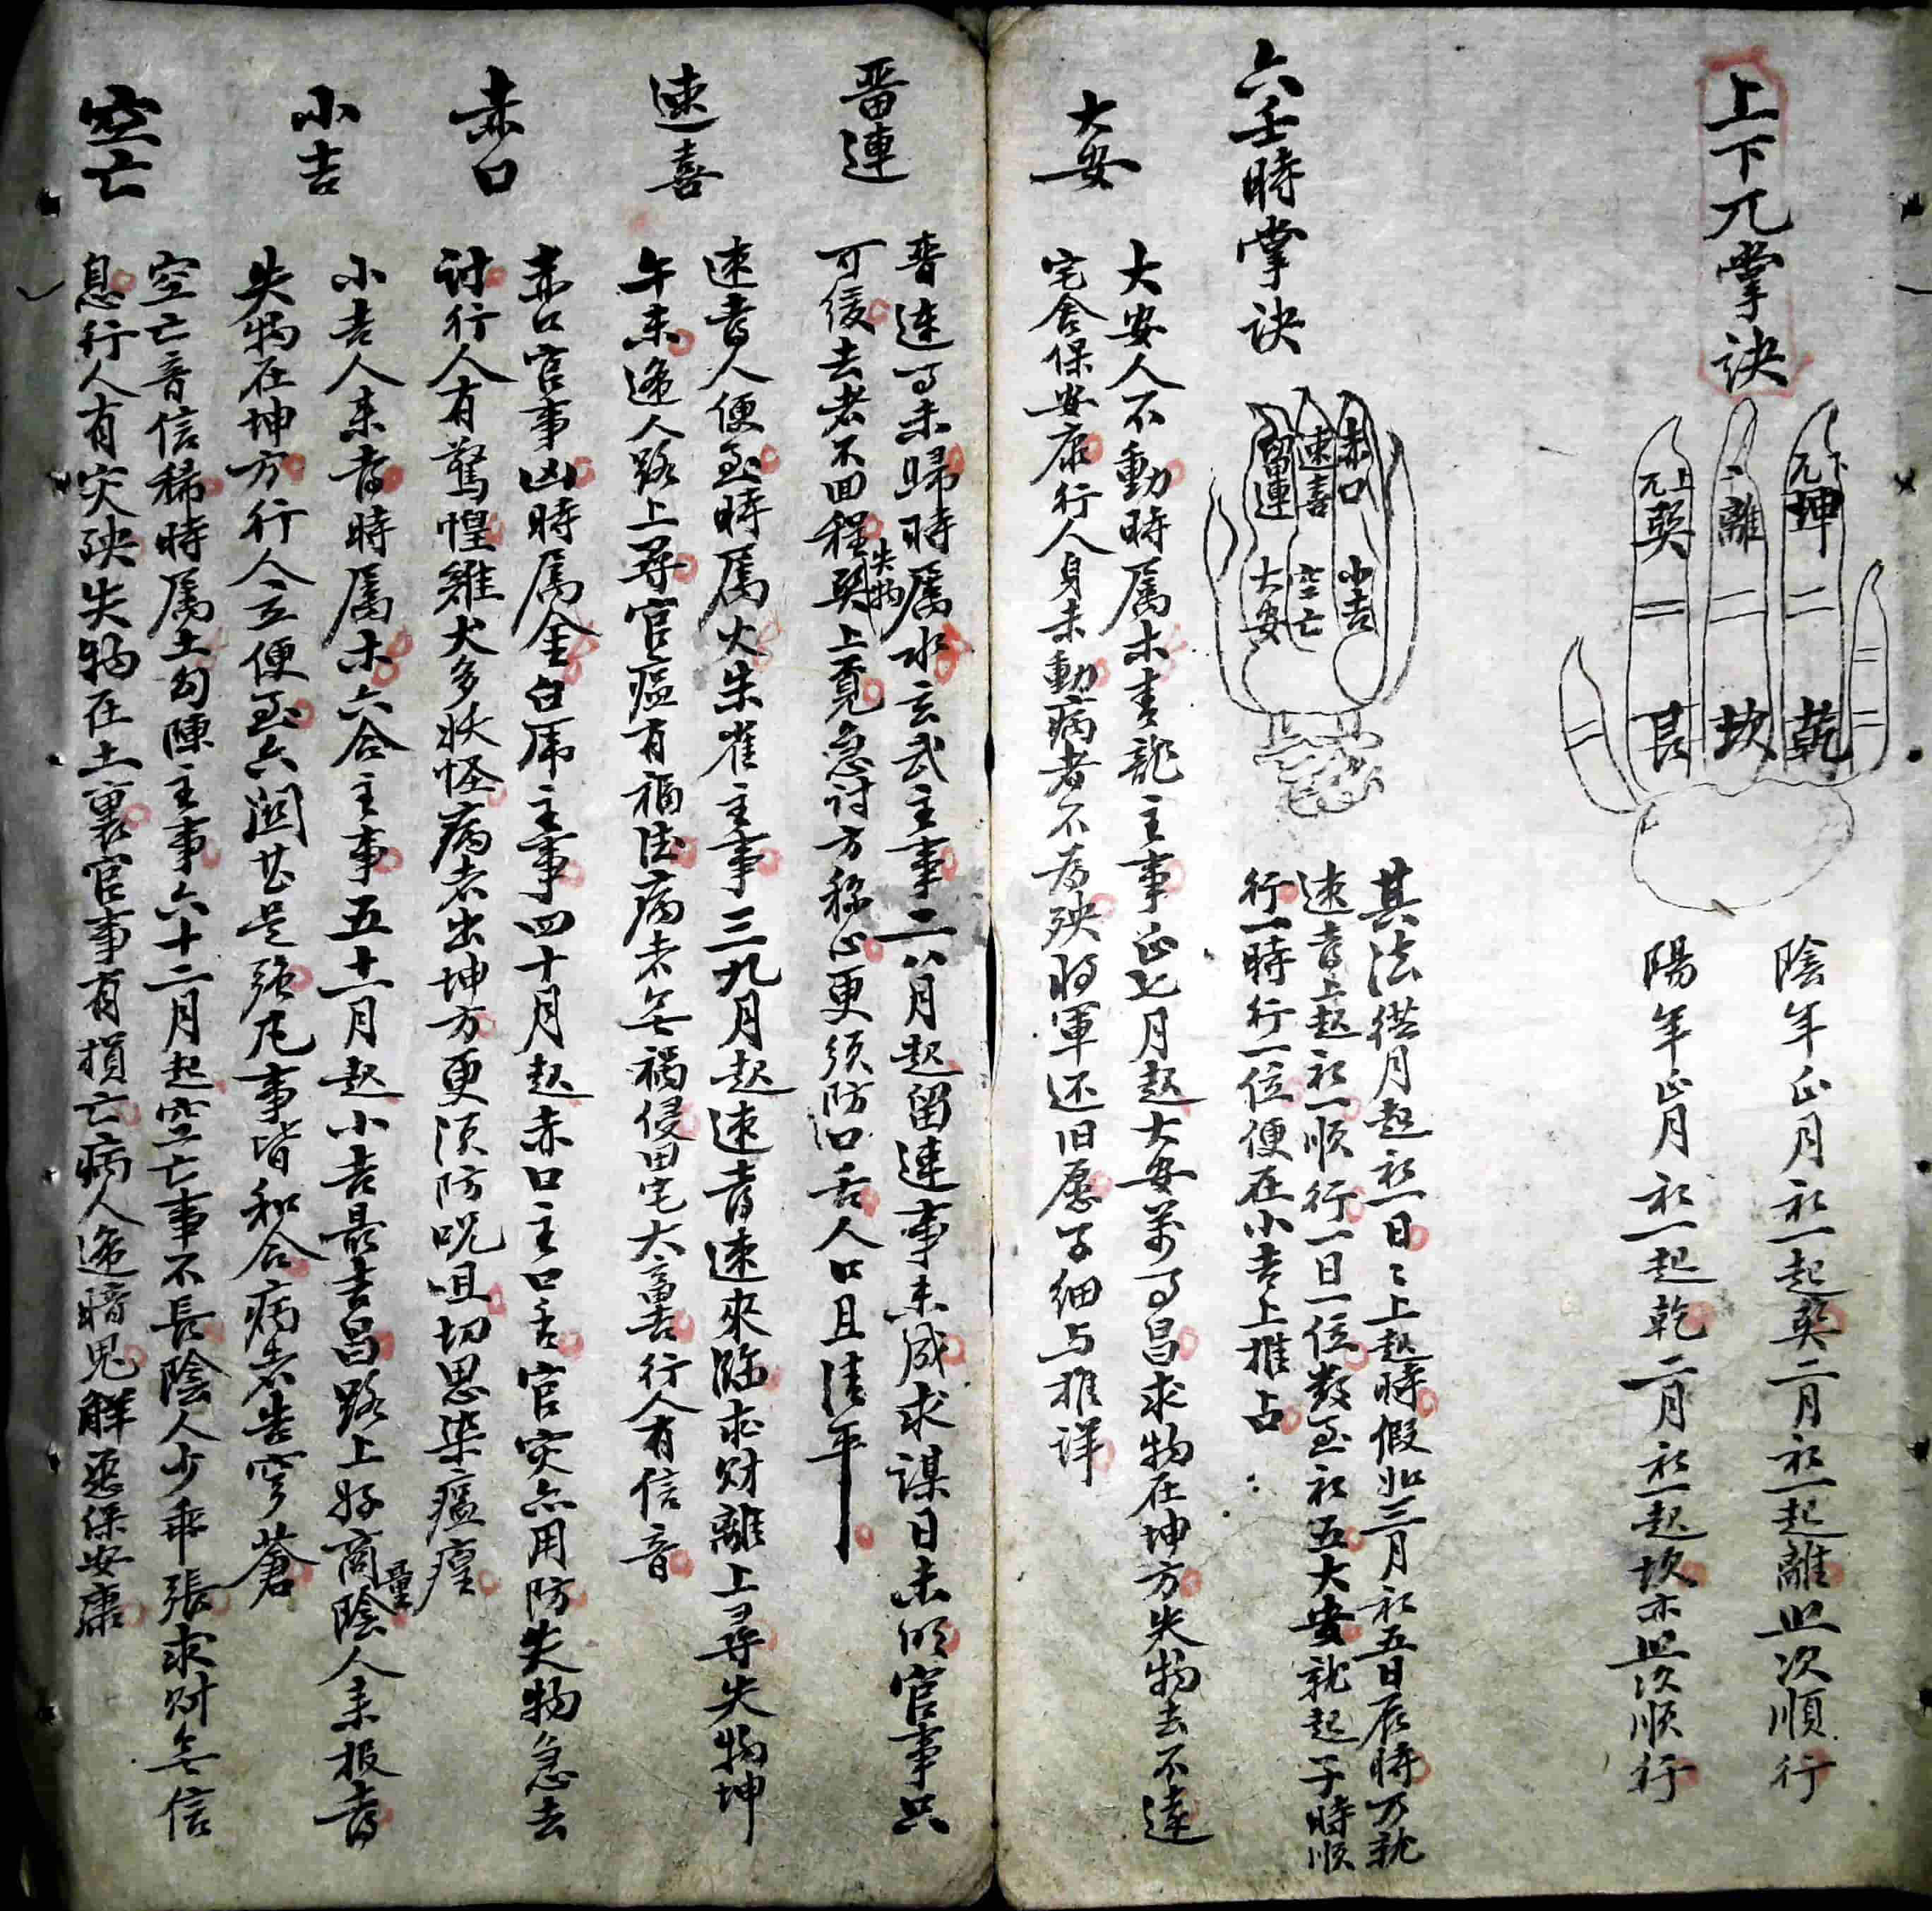 上下兀掌訣
下元坤
二離
上元巽
乾
坎
艮
陰年正月初一起巽二月初一起離照次順行
陽年正月初一起乾二月初一起坎亦照次順行
六壬時掌訣
赤口
速喜
留連
小吉
空亡
大安
其法從月起初一日日上起時假如三月初五日辰時乃就
速喜上起初一順行一日一位数至初五大安就起子時順
行一時行一位便在小吉上推占
大安
大安人不動時属木青龍主事正七月起大安萬事昌求物在坤方失物去不遠
宅舍保安康行人身未動病者不為殃将軍还旧愿子細与推详
留連
留連事未歸時属水玄武主事二八月起留連事未成求謀日未明官事只
可緩去者不回程失物巽上覓急討方称心更須防口舌人口且清平
速喜
速喜人便至時属火朱雀主事三九月起速喜速來臨求财離上尋失物坤
午未逢人路上尋官瘟有福德病者无禍侵田宅大畜吉行人有信音
赤口
赤口官事凶時属金白虎主事四十月起赤口主口舌官灾亦用防失物急去
討行人有驚惶雞犬多妖怪病者出坤方更須防呪咀切思染瘟瘽
小吉
小吉人来喜時属木六合主事五十一月起小吉最吉昌路上好商量陰人来报喜
失物在坤方行人立便至六關甚是强凡事皆和合病者告穹蒼
空亡
空亡音信稀時属土勾陳主事六十二月起空亡事不長陰人少乖張求财无信
息行人有灾殃失物在土裏官事有損亡病人逢暗鬼解送保安康